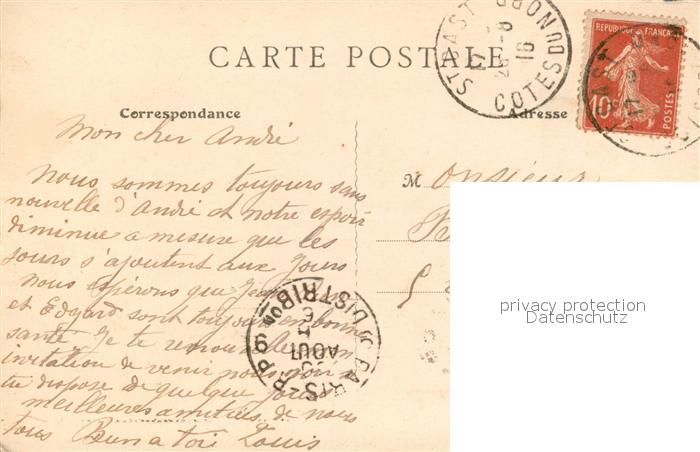 CARTE POSTALE
ST CAST
17
26-8
16
COTES DU NORD
REPUBLIQUE FRANÇAISE
10
POSTES
Correspondance
Adresse
Mon cher André
Nous sommes toujours sans
nouvelle d'André et notre espoir
diminue a mesure que les
jours s'ajoutent aux jours
nous espérons que
et Edgard sont toujours en bonne
santé. Je te renouvelle mon
invitation de venir nous voir si
tu dispose de quelque jours
meilleures amitiés de nous
tous Bien a toi Louis
Monsieur
PARIS
DISTRIBON
AOUT
privacy protection
Datenschutz